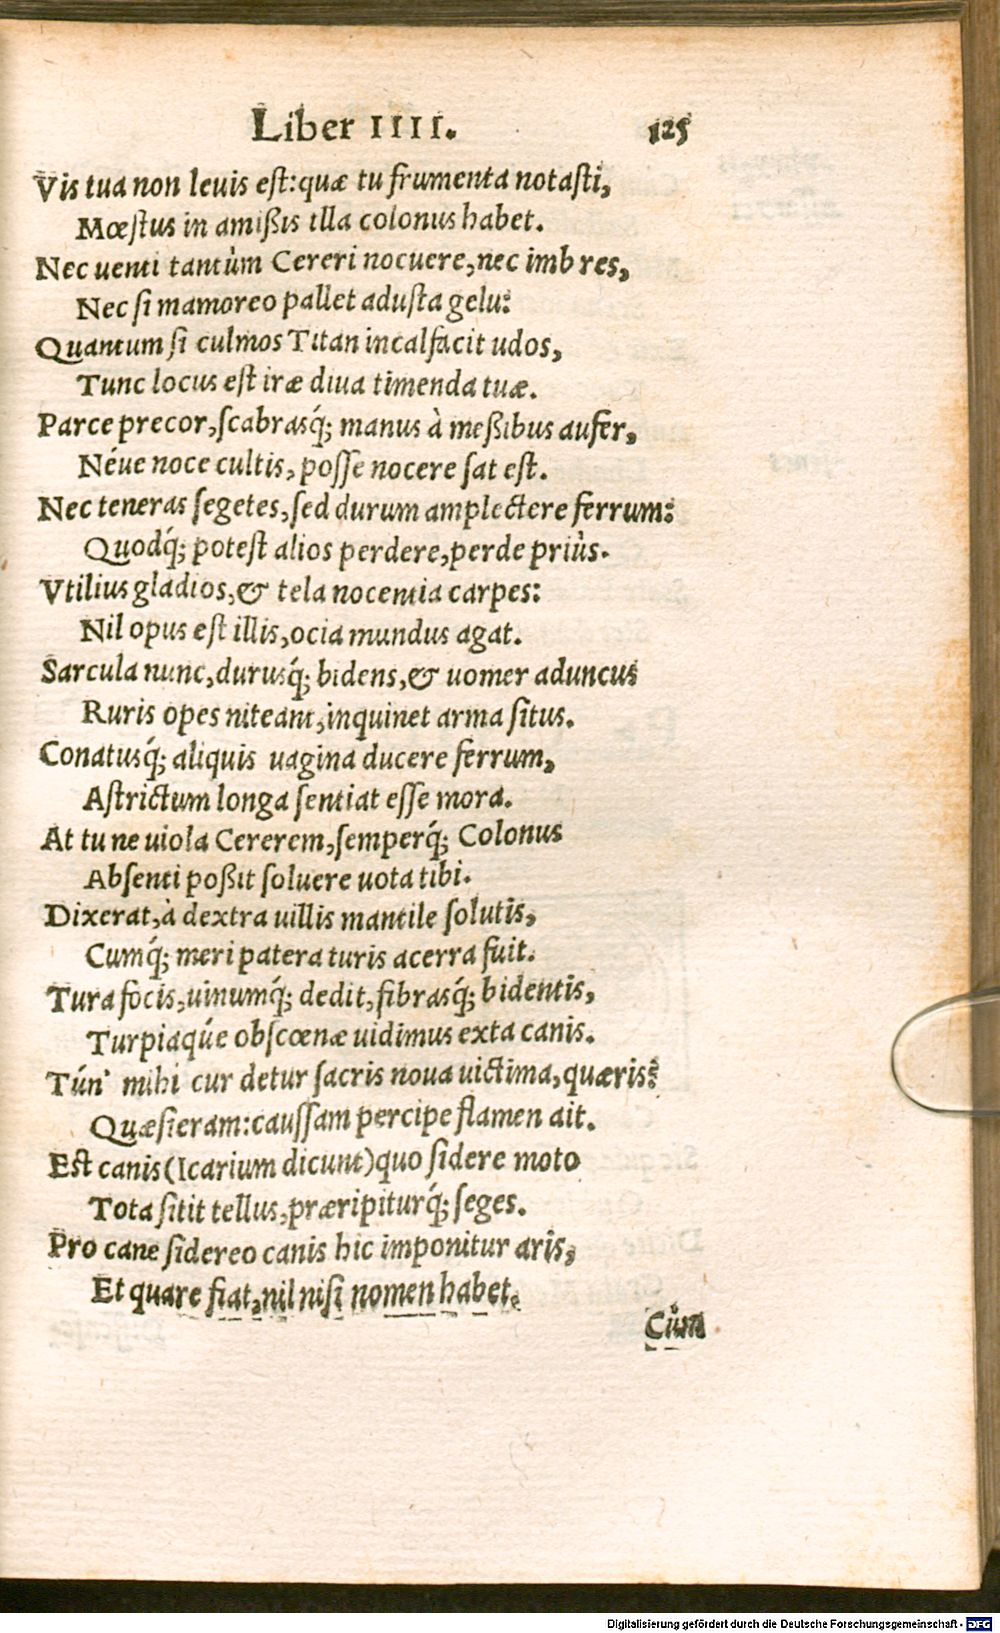 Liber IIII. 125
Vis tua non leuis eſt: quæ tu frumenta notaſti,
Mœſtus in amißis illa colonus habet.
Nec uenti tantùm Cereri nocuere, nec imbres,
Nec ſi mamoreo pallet aduſta gelu:
Quantum ſi culmos Titan incalfacit udos,
Tunc locus eſt iræ diua timenda tuæ.
Parce precor, ſcabrasq́; manus à meßibus aufer,
Néue noce cultis, poſſe nocere ſat eſt.
Nec teneras ſegetes, ſed durum amplectere ferrum:
Quodq́; poteſt alios perdere, perde priùs.
Vtilius gladios, & tela nocentia carpes:
Nil opus eſt illis, ocia mundus agat.
Sarcula nunc, durusq́; bidens, & uomer aduncus
Ruris opes niteant, inquinet arma ſitus.
Conatusq́; aliquis uagina ducere ferrum,
Aſtrictum longa ſentiat eſſe mora.
At tu ne uiola Cererem, ſemperq́; Colonus
Abſenti poßit ſoluere uota tibi.
Dixerat, à dextra uillis mantile ſolutis,
Cumq́; meri patera turis acerra fuit.
Tura focis, uinumq́; dedit, fibrasq́; bidentis,
Turpiaqúe obſcœnæ uidimus exta canis.
Tún' mihi cur detur ſacris noua uictima, quæris?
Quæsieram: cauſſam percipe flamen ait.
Eſt canis (Icarium dicunt) quo ſidere moto
Tota ſitit tellus, præripiturq́; ſeges.
Pro cane ſidereo canis hic imponitur aris,
Et quare fiat, nil niſi nomen habet.
Cùm
Digitalisierung gefördert durch die Deutsche Forschungsgemeinschaft - DFG